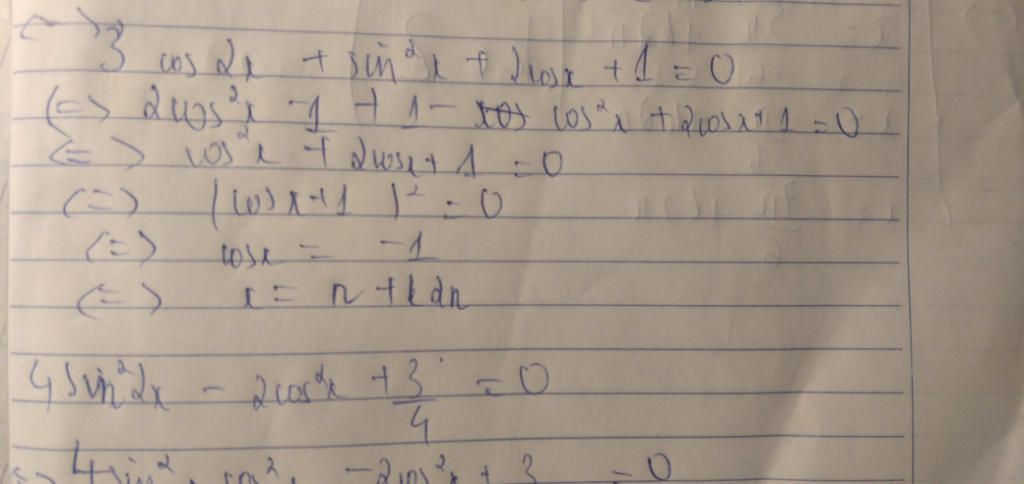 3 cos2x + sin²x + 2cosx + 1 = 0
(=) 2cos²x - 1 + 1 - cos²x + 2cosx + 1 = 0
(=) cos²x + 2cosx + 1 = 0
(=) (cosx+1)² = 0
(=) cosx = -1
(=) x = π + k2π
4 sin²2x - 2cos²x + 3/4 = 0
4sin² cos² -2cos²x + 3 = 0